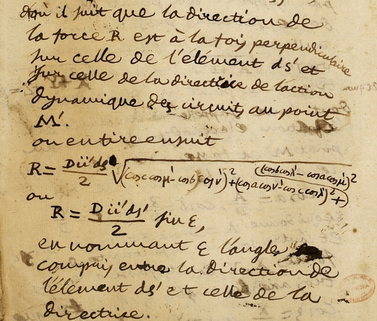 d'où il suit que la direction de
la force R est à la fois perpendiculaire
sur celle de l'élément ds' et
sur celle de la directrice de l'action
dynamique des circuit au point
M'.
ou en tire ensuit
R = Dii'ds'/2 √(cosc cosμ' - cosb cosν')² + (cosa cosν' - cosc cosλ')² + (cosb cosλ' - cosa cosμ')²
ou
R = Dii'ds'/2 sin ε,
en nommant ε l'angle
compris entre la direction de
l'élément ds' et celle de la
directrice.